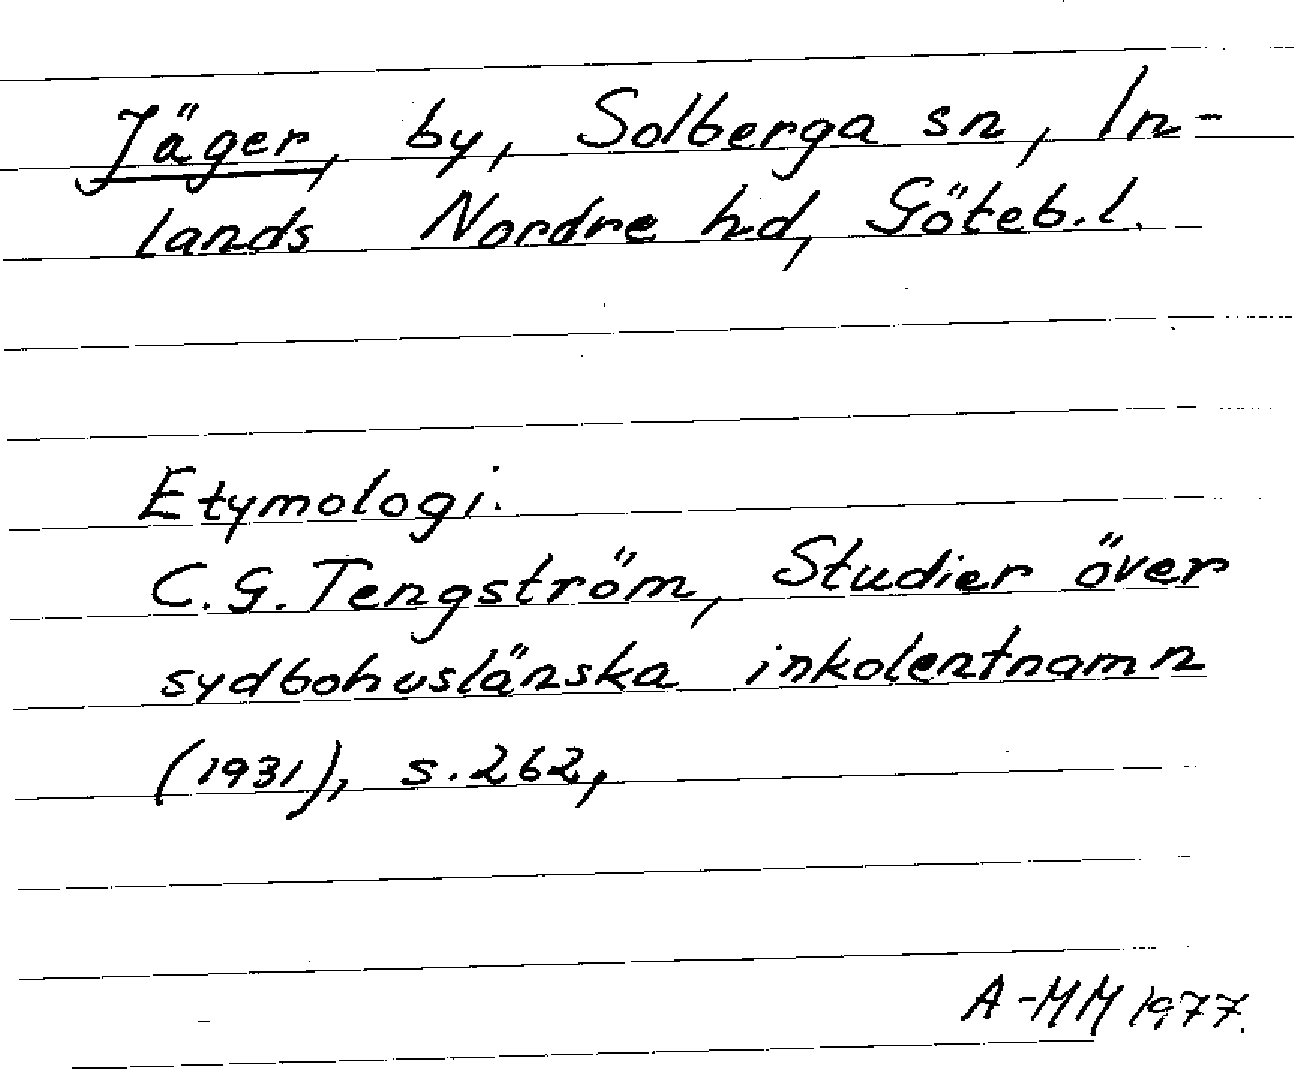 Jäger, by, Solberga sn, In-
lands Nordre hd, Göteb.l.
Etymologi.
C.G. Tengström, Studier över
sydbohuslänska inkolentnamn
(1931), s. 262,
A-MM 1977.